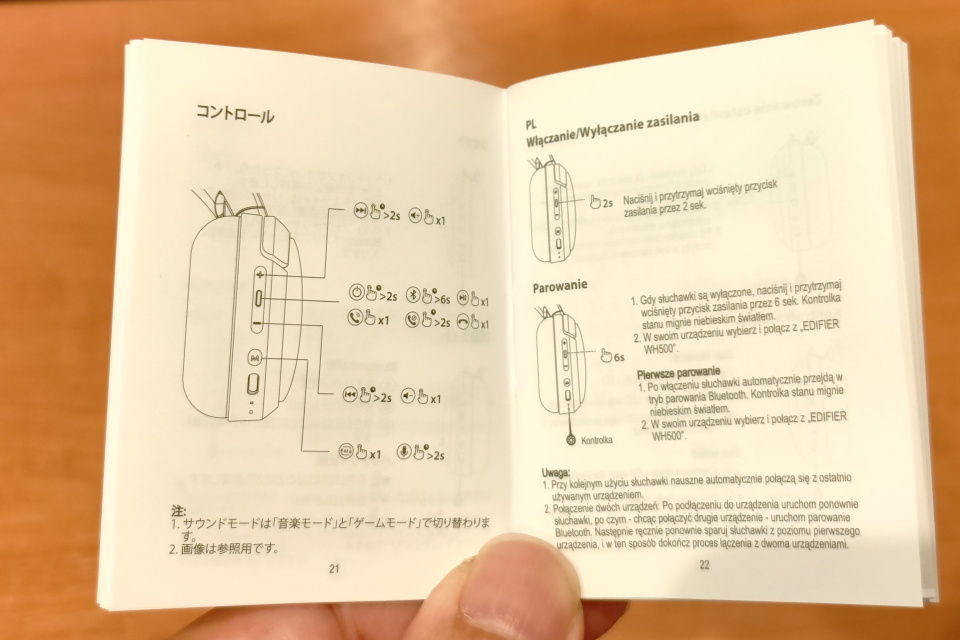 コントロール
>2s x1
>2s >6s x1
x1 >2s x1
M
>2s x1
x1 >2s
注:
1. サウンドモードは「音楽モード」と「ゲームモード」で切り替わりま
す。
2. 画像は参照用です。
21
PL
Włączanie/Wyłączanie zasilania
2s
Naciśnij i przytrzymaj wciśnięty przycisk
zasilania przez 2 sek.
Parowanie
6s
Kontrolka
1. Gdy słuchawki są wyłączone, naciśnij i przytrzymaj
wciśnięty przycisk zasilania przez 6 sek. Kontrolka
stanu mignie niebieskim światłem.
2. W swoim urządzeniu wybierz i połącz z „EDIFIER
WH500”.
Pierwsze parowanie
1. Po włączeniu słuchawki automatycznie przejdą w
tryb parowania Bluetooth. Kontrolka stanu mignie
niebieskim światłem.
2. W swoim urządzeniu wybierz i połącz z „EDIFIER
WH500”.
Uwaga:
1. Przy kolejnym użyciu słuchawki nauszne automatycznie połączą się z ostatnio
używanym urządzeniem.
2. Połączenie dwóch urządzeń: Po podłączeniu do urządzenia uruchom ponownie
słuchawki, po czym - chcąc połączyć drugie urządzenie - uruchom parowanie
Bluetooth. Następnie ręcznie ponownie sparuj słuchawki z poziomu pierwszego
urządzenia, i w ten sposób dokończ proces łączenia z dwoma urządzeniami.
22